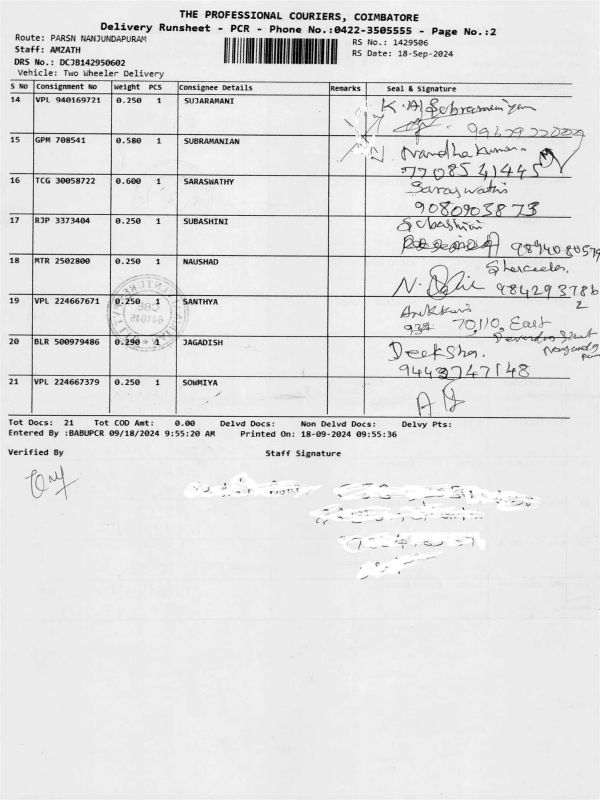 THE PROFESSIONAL COURIERS, COIMBATORE
Delivery Runsheet - PCR - Phone No.:0422-3505555 - Page No.:2
Route: PARSN NANJUNDAPURAM
RS No.: 1429506
Staff: AMZATH
RS Date: 18-Sep-2024
DRS No.: DCJB142950602
Vehicle: Two Wheeler Delivery
S No Consignment No Weight PCS Consignee Details Remarks Seal & Signature
14 VPL 940169721 0.250 1 SUJARAMANI
15 GPM 708541 0.580 1 SUBRAMANIAN Nandhakumar
7708541445
16 TCG 30058722 0.600 1 SARASWATHY Saraswathi
9080903873
17 RJP 3373404 0.250 1 SUBASHINI Subashini
18 MTR 2502800 0.250 1 NAUSHAD
984293786
2
19 VPL 224667671 0.250 1 SANTHYA
70,110, East
20 BLR 500979486 0.290 1 JAGADISH Deeksha.
9443747148
21 VPL 224667379 0.250 1 SOWMIYA
Tot Docs: 21 Tot COD Amt: 0.00 Delvd Docs: Non Delvd Docs: Delvy Pts:
Entered By :BABUPCR 09/18/2024 9:55:20 AM Printed On: 18-09-2024 09:55:36
Verified By Staff Signature